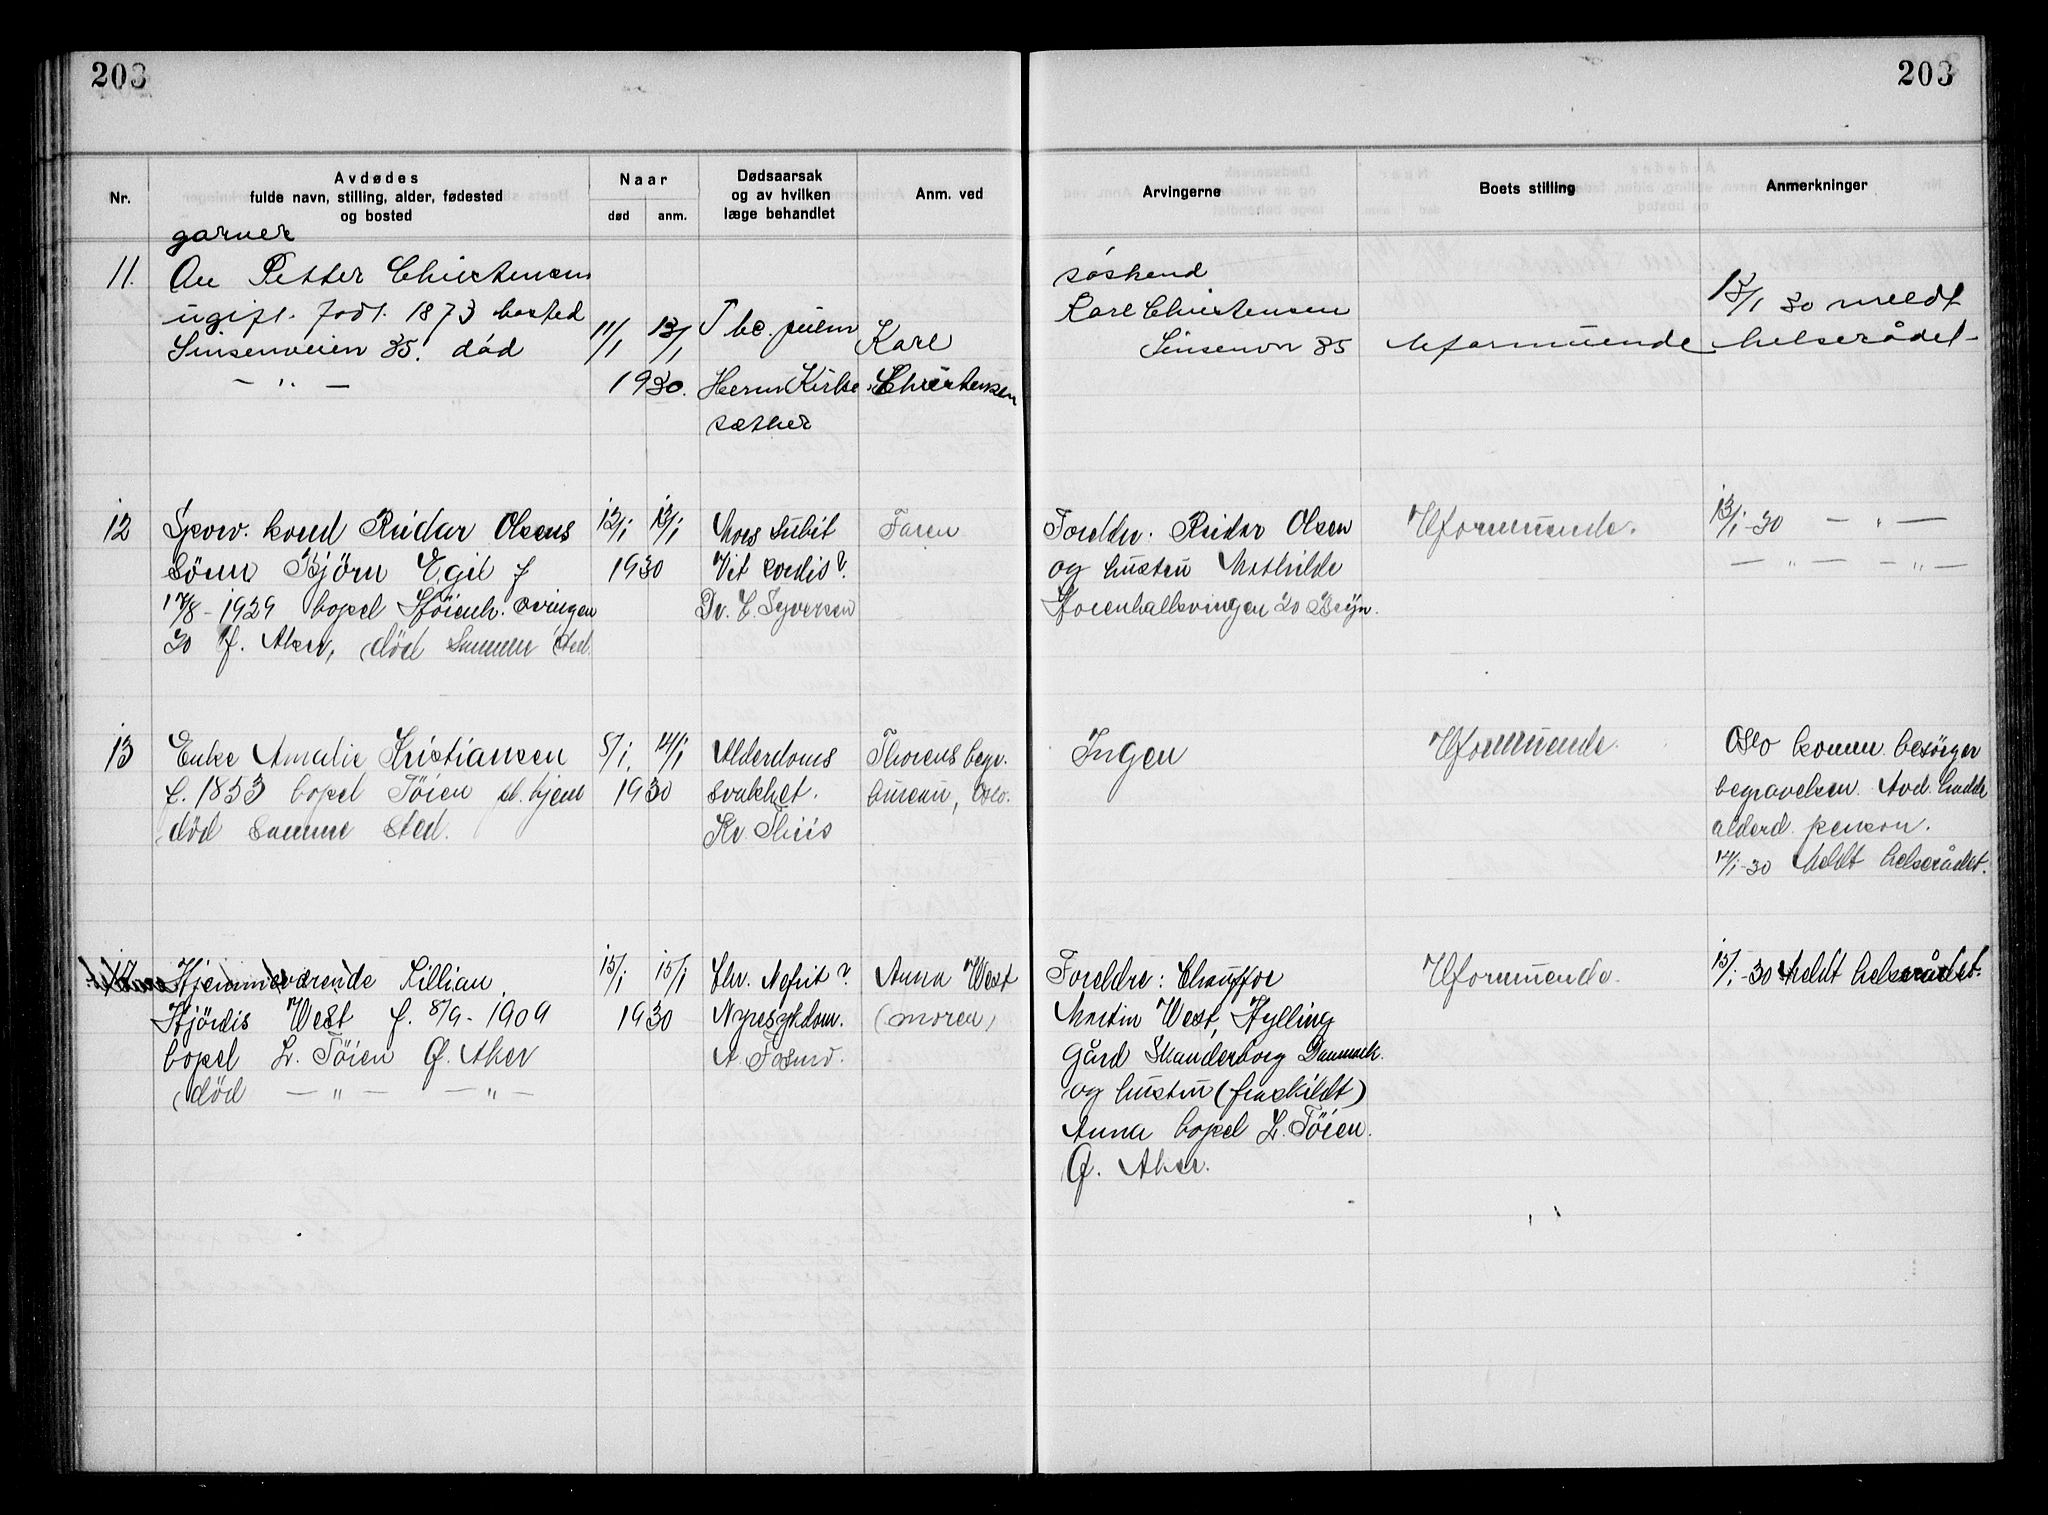 203
203
Nr.
Avdødes
fulde navn, stilling, alder, fødested
og bosted
Naar
død
anm.
Dødsaarsak
og av hvilken
læge behandlet
Anm. ved
Arvingerne
Boets stilling
Anmerkninger
garner
11. Petter Christensen
ugift. født. 1873 bosted
Sinsenveien 35. død
— " —
11/1 13/1
1930.
Tbc. pulm
Herm Kirke
sæther
Karl
Christensen
søskend
Karl Christensen
Sinsenvn 35
Uformuende
13/1 30 meldt
helserådet
12 Sporv. kond Reidar Olsens
Sønn Björn Egil f
17/8 - 1929 bopel Høienh. svingen
20 Ø. Aker, død samme sted.
12/1 13/1
1930
Mors subit
Vit cordis?
Dr. E. Syversen
Faren
Foreldre: Reidar Olsen
og hustru Mathilde
Høienhallsvingen 20 Bryn.
Uformuende.
13/1-30 — " —
— " — — " —
13 Enke Amalie Kristiansen
f. 1853 bopel Töien pl. hjem
død samme sted.
8/1 14/1
1930
Alderdoms
svakhet.
Kr. Thiis
Thorens begr.
bureau, Oslo.
Ingen
Uformuende.
Oslo komm. besörger
begravelsen. Avd. hadde
alderd. pension.
14/1-30 Meldt helserådet.
Hjemmeværende Lillian
Hjördis West f. 8/9 - 1909
bopel L. Töien Ø. Aker
død — " — — " —
15/1 15/1
1930
Chr. Nefrit?
Nyresykdom.
Anna West
(moren)
Foreldre: Chauffør
Martin West, Hylling
Gård Skanderborg Danmark.
og hustru (fraskildt)
Anna bopel L. Töien.
Ø. Aker.
Uformuende.
15/1-30 Meldt helserådet.